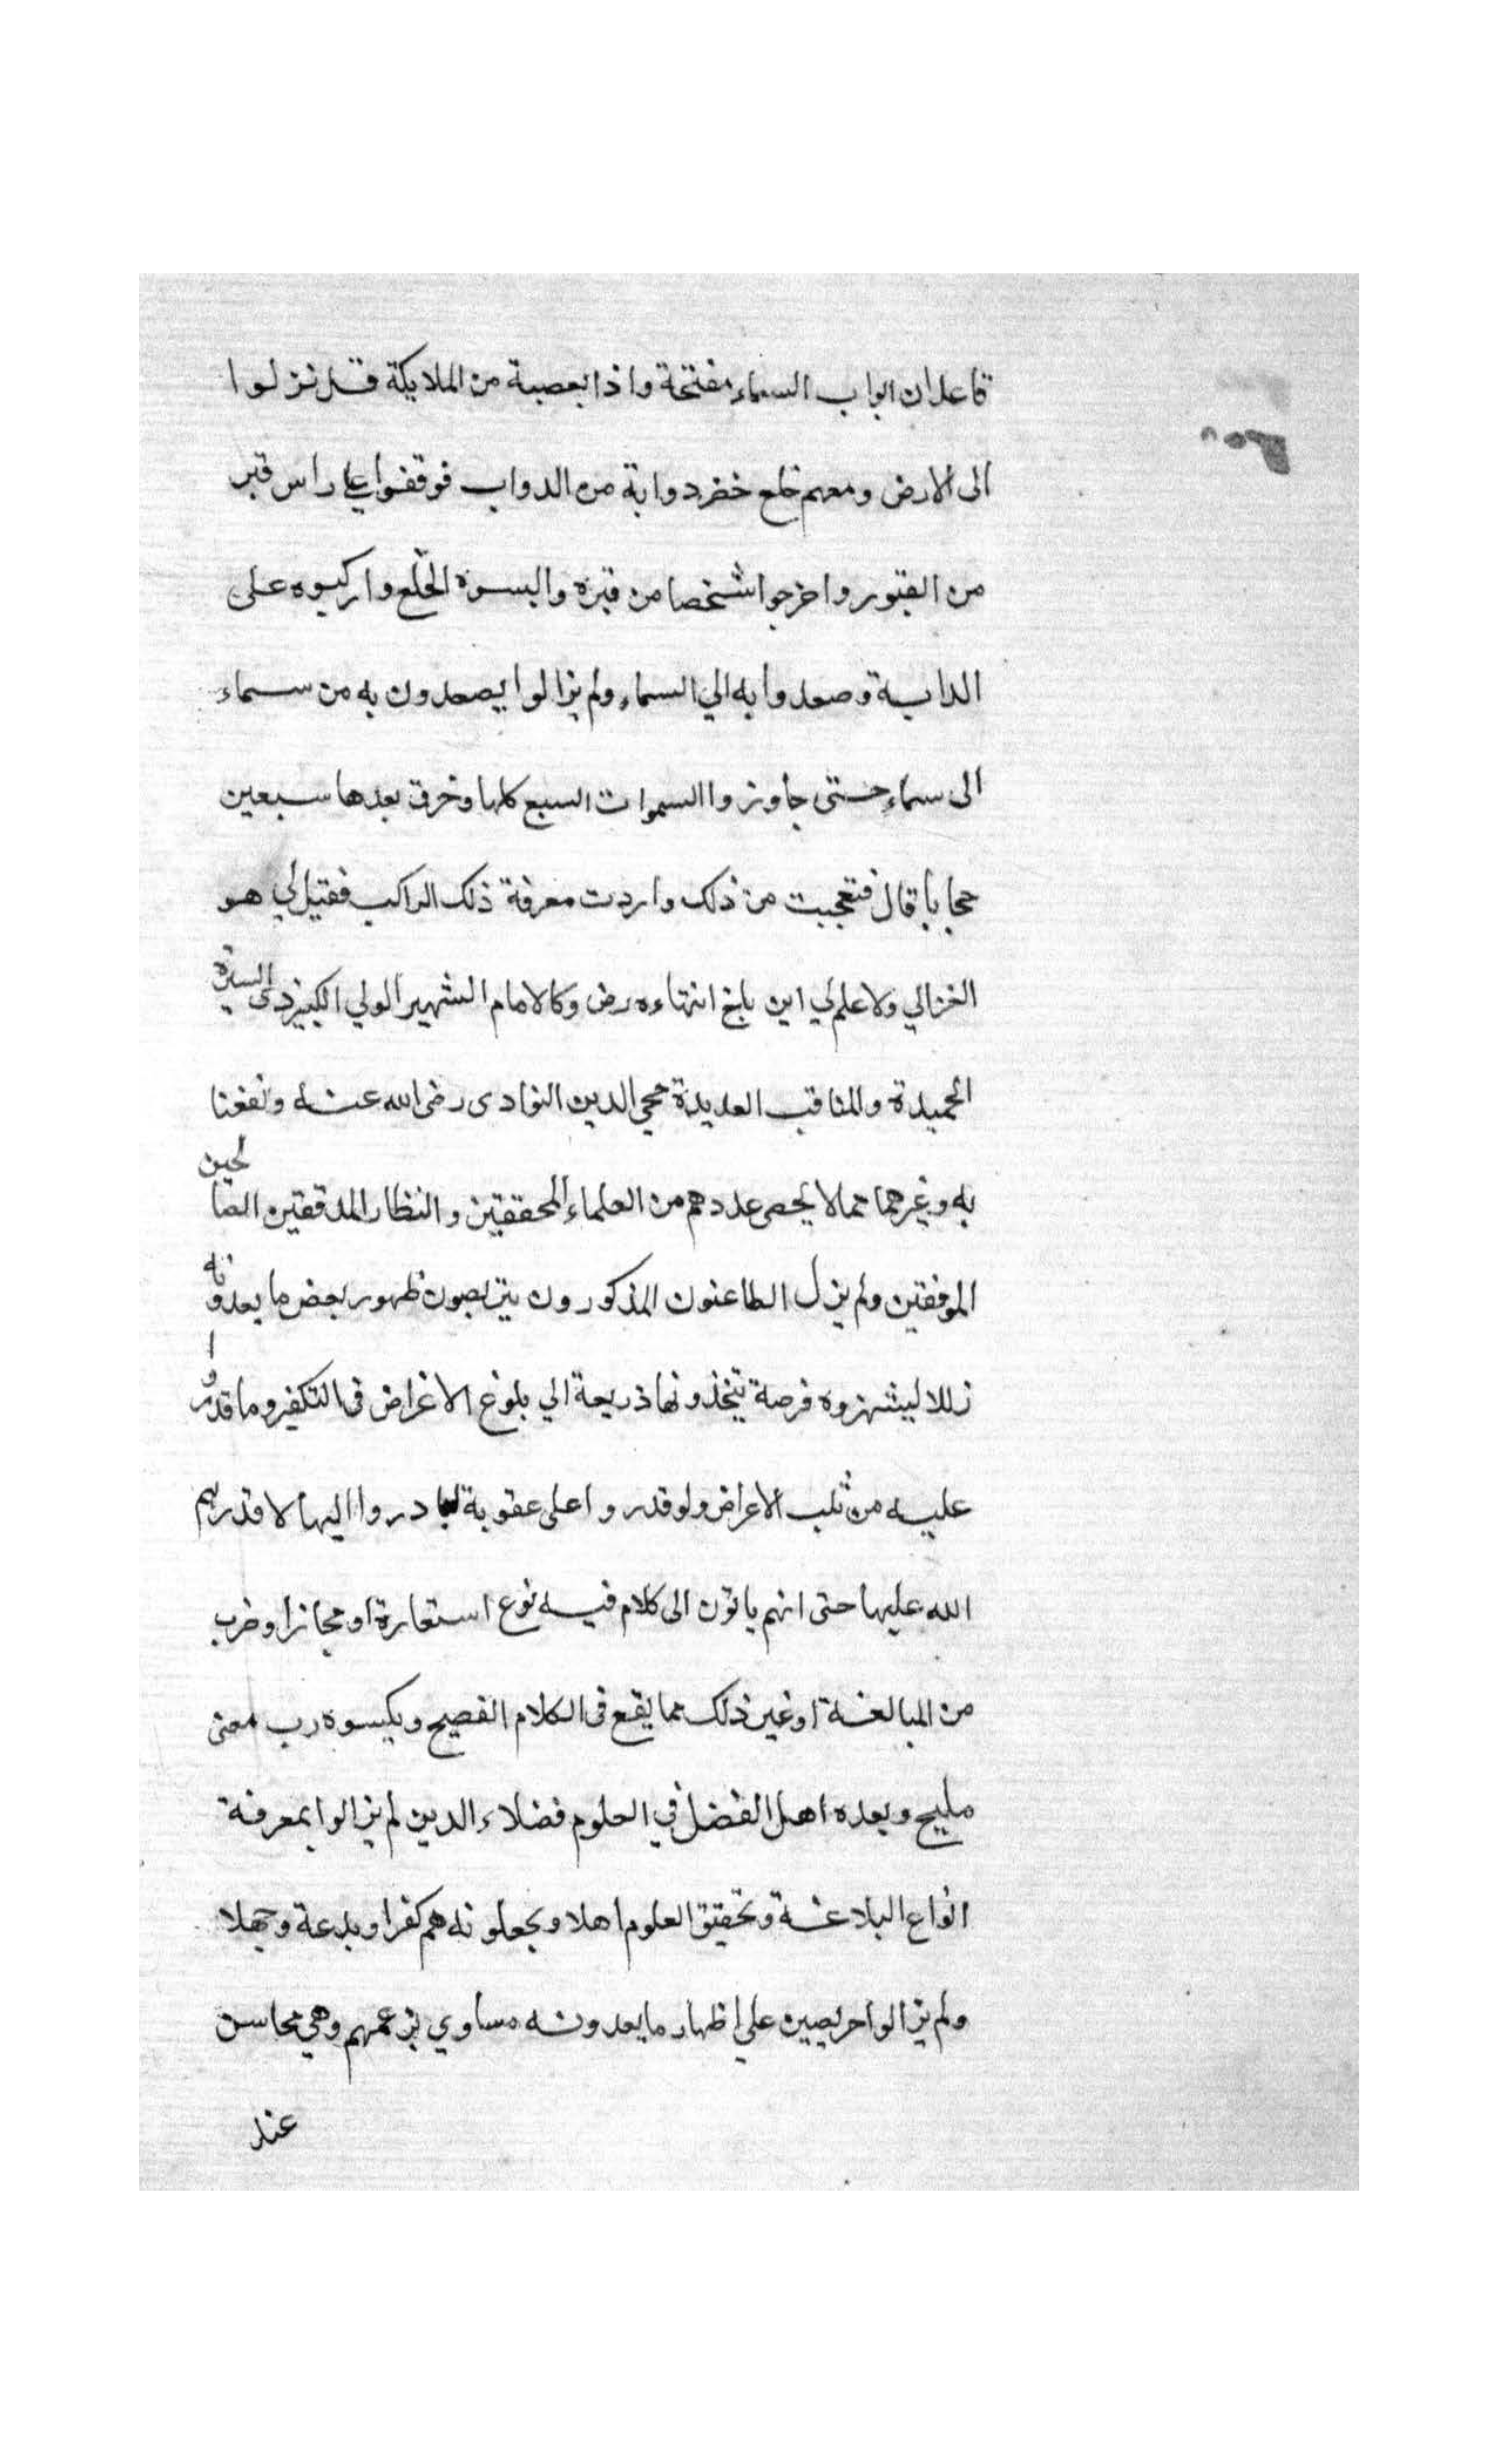 قاعدا ان ابواب السماء مفتحة واذا بعصبة من الملايكة قد نزلوا
الى الارض ومعهم خلع خضر ودابة من الدواب فوقفوا على راس قبر
من القبور واخرجوا شخصا من قبره والبسوه الخلع واركبوه على
الدابة وصعدوا به الي السماء ولم يزالوا يصعدون به من سماء
الى سماء حتى جاوزوا السموات السبع كلها وخرق بعدها سبعين
حجابا قال فتعجبت من ذلك واردت معرفة ذلك الراكب فقيل لي هو
الغزالي ولا علم لي اين بلغ انتهاءه رض وكالامام الشهير الولي الكبير ذى السيرة
الحميدة والمناقب العديدة محي الدين النواوى رضى الله عنه ونفعنا
به وغيرهما مما لا يحصى عددهم من العلماء المحققين والنظار المدققين الصالحين
الموفقين ولم يزل الطاعنون المذكورون يتربصون ظهور بعض ما يعدونه
زللا لينتهزوه فرصة يتخذونها ذريعة الي بلوغ الاغراض فى التكفير وما قدروا
عليه من ثلب الاعراض ولو قدروا على عقوبة لبادروا اليها لا قدرهم
الله عليها حتى انهم ياتون الى كلام فيه نوع استعارة او مجاز او ضرب
من المبالغة او غير ذلك مما يقع فى الكلام الفصيح ويكسوه رب معنى
مليح ويعده اهل الفضل في العلوم فضلاء الدين لم يزالوا بمعرفة
انواع البلاغة وتحقيق العلوم اهلا ويجعلونه هم كفرا وبدعة وجهلا
ولم يزالوا حريصين علي اظهار ما يعدونه مساوي بزعمهم وهي محاسن
عند